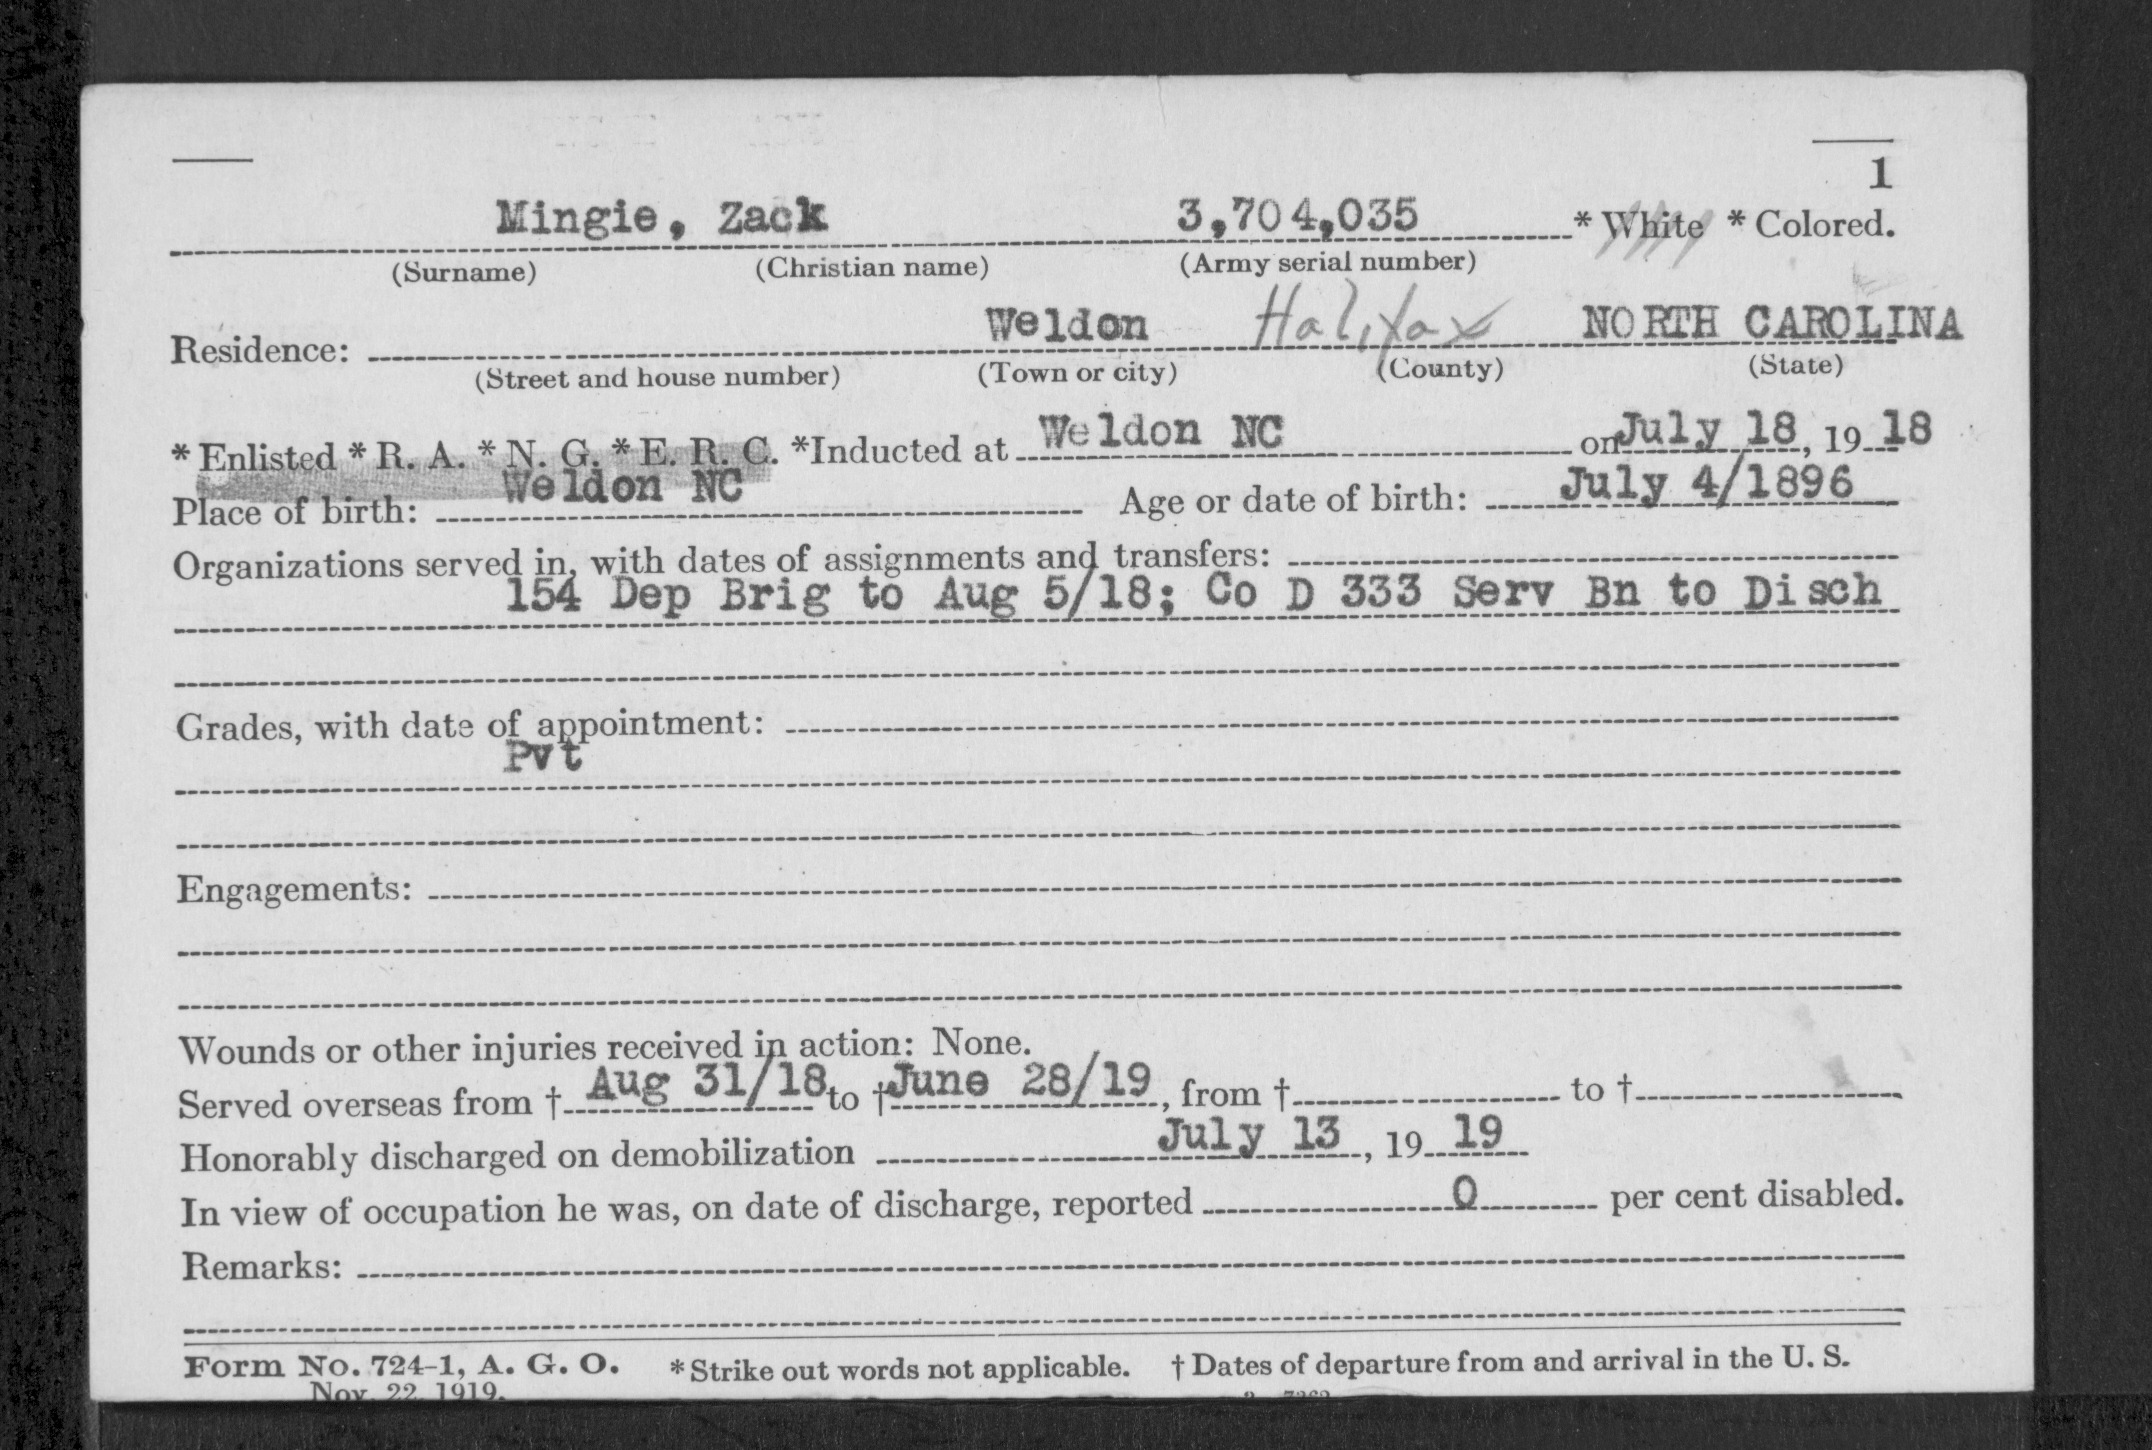 1
Mingie, Zack 3,704,035 * White * Colored.
(Surname) (Christian name) (Army serial number)
Residence: Weldon Halifax NORTH CAROLINA
(Street and house number) (Town or city) (County) (State)
* Enlisted * R. A. * N. G. * E. R. C. *Inducted at Weldon NC on July 18, 19 18
Place of birth: Weldon NC Age or date of birth: July 4/1896
Organizations served in, with dates of assignments and transfers:
154 Dep Brig to Aug 5/18; Co D 333 Serv Bn to Disch
Grades, with date of appointment:
Pvt
Engagements:
Wounds or other injuries received in action: None.
Served overseas from † Aug 31/18 to † June 28/19, from † to †
Honorably discharged on demobilization July 13, 19 19
In view of occupation he was, on date of discharge, reported 0 per cent disabled.
Remarks:
Form No. 724-1, A. G. O. * Strike out words not applicable. † Dates of departure from and arrival in the U. S.
Nov. 22, 1919.